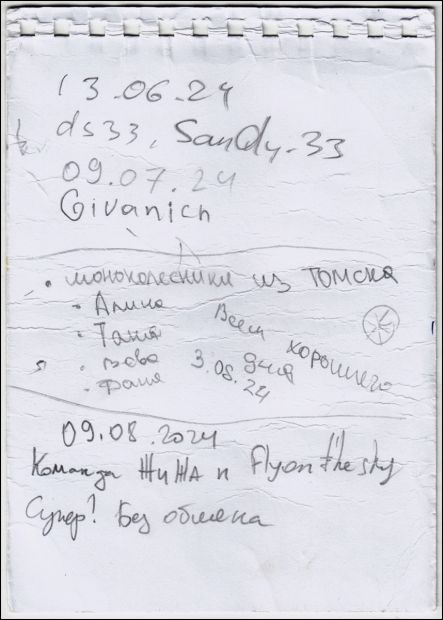 13.06.24
ds33, Sandy-33
09.07.24
Givanich
• моноколесники из Томска
• Алина
• Таня
• Вова
• Фаня
Всем хорошего дня
3.08.24
09.08.2024
Команда ЖиЖА и Flyonthesky
Супер! Без обмена